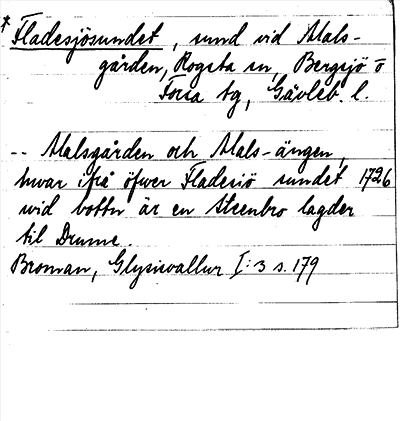 * Fladesjösundet, sund vid Alals-
gården, Rogsta sn, Bergsjö o
Forsa tg, Gävleb. l.
-- Alalsgården och Alals-ängen,
hwar ifrå öfwer Fladesiö sundet 1726
wid bottn är en Steenbro lagder
til Drume.
Broman, Glysisvallur I:3 s. 179